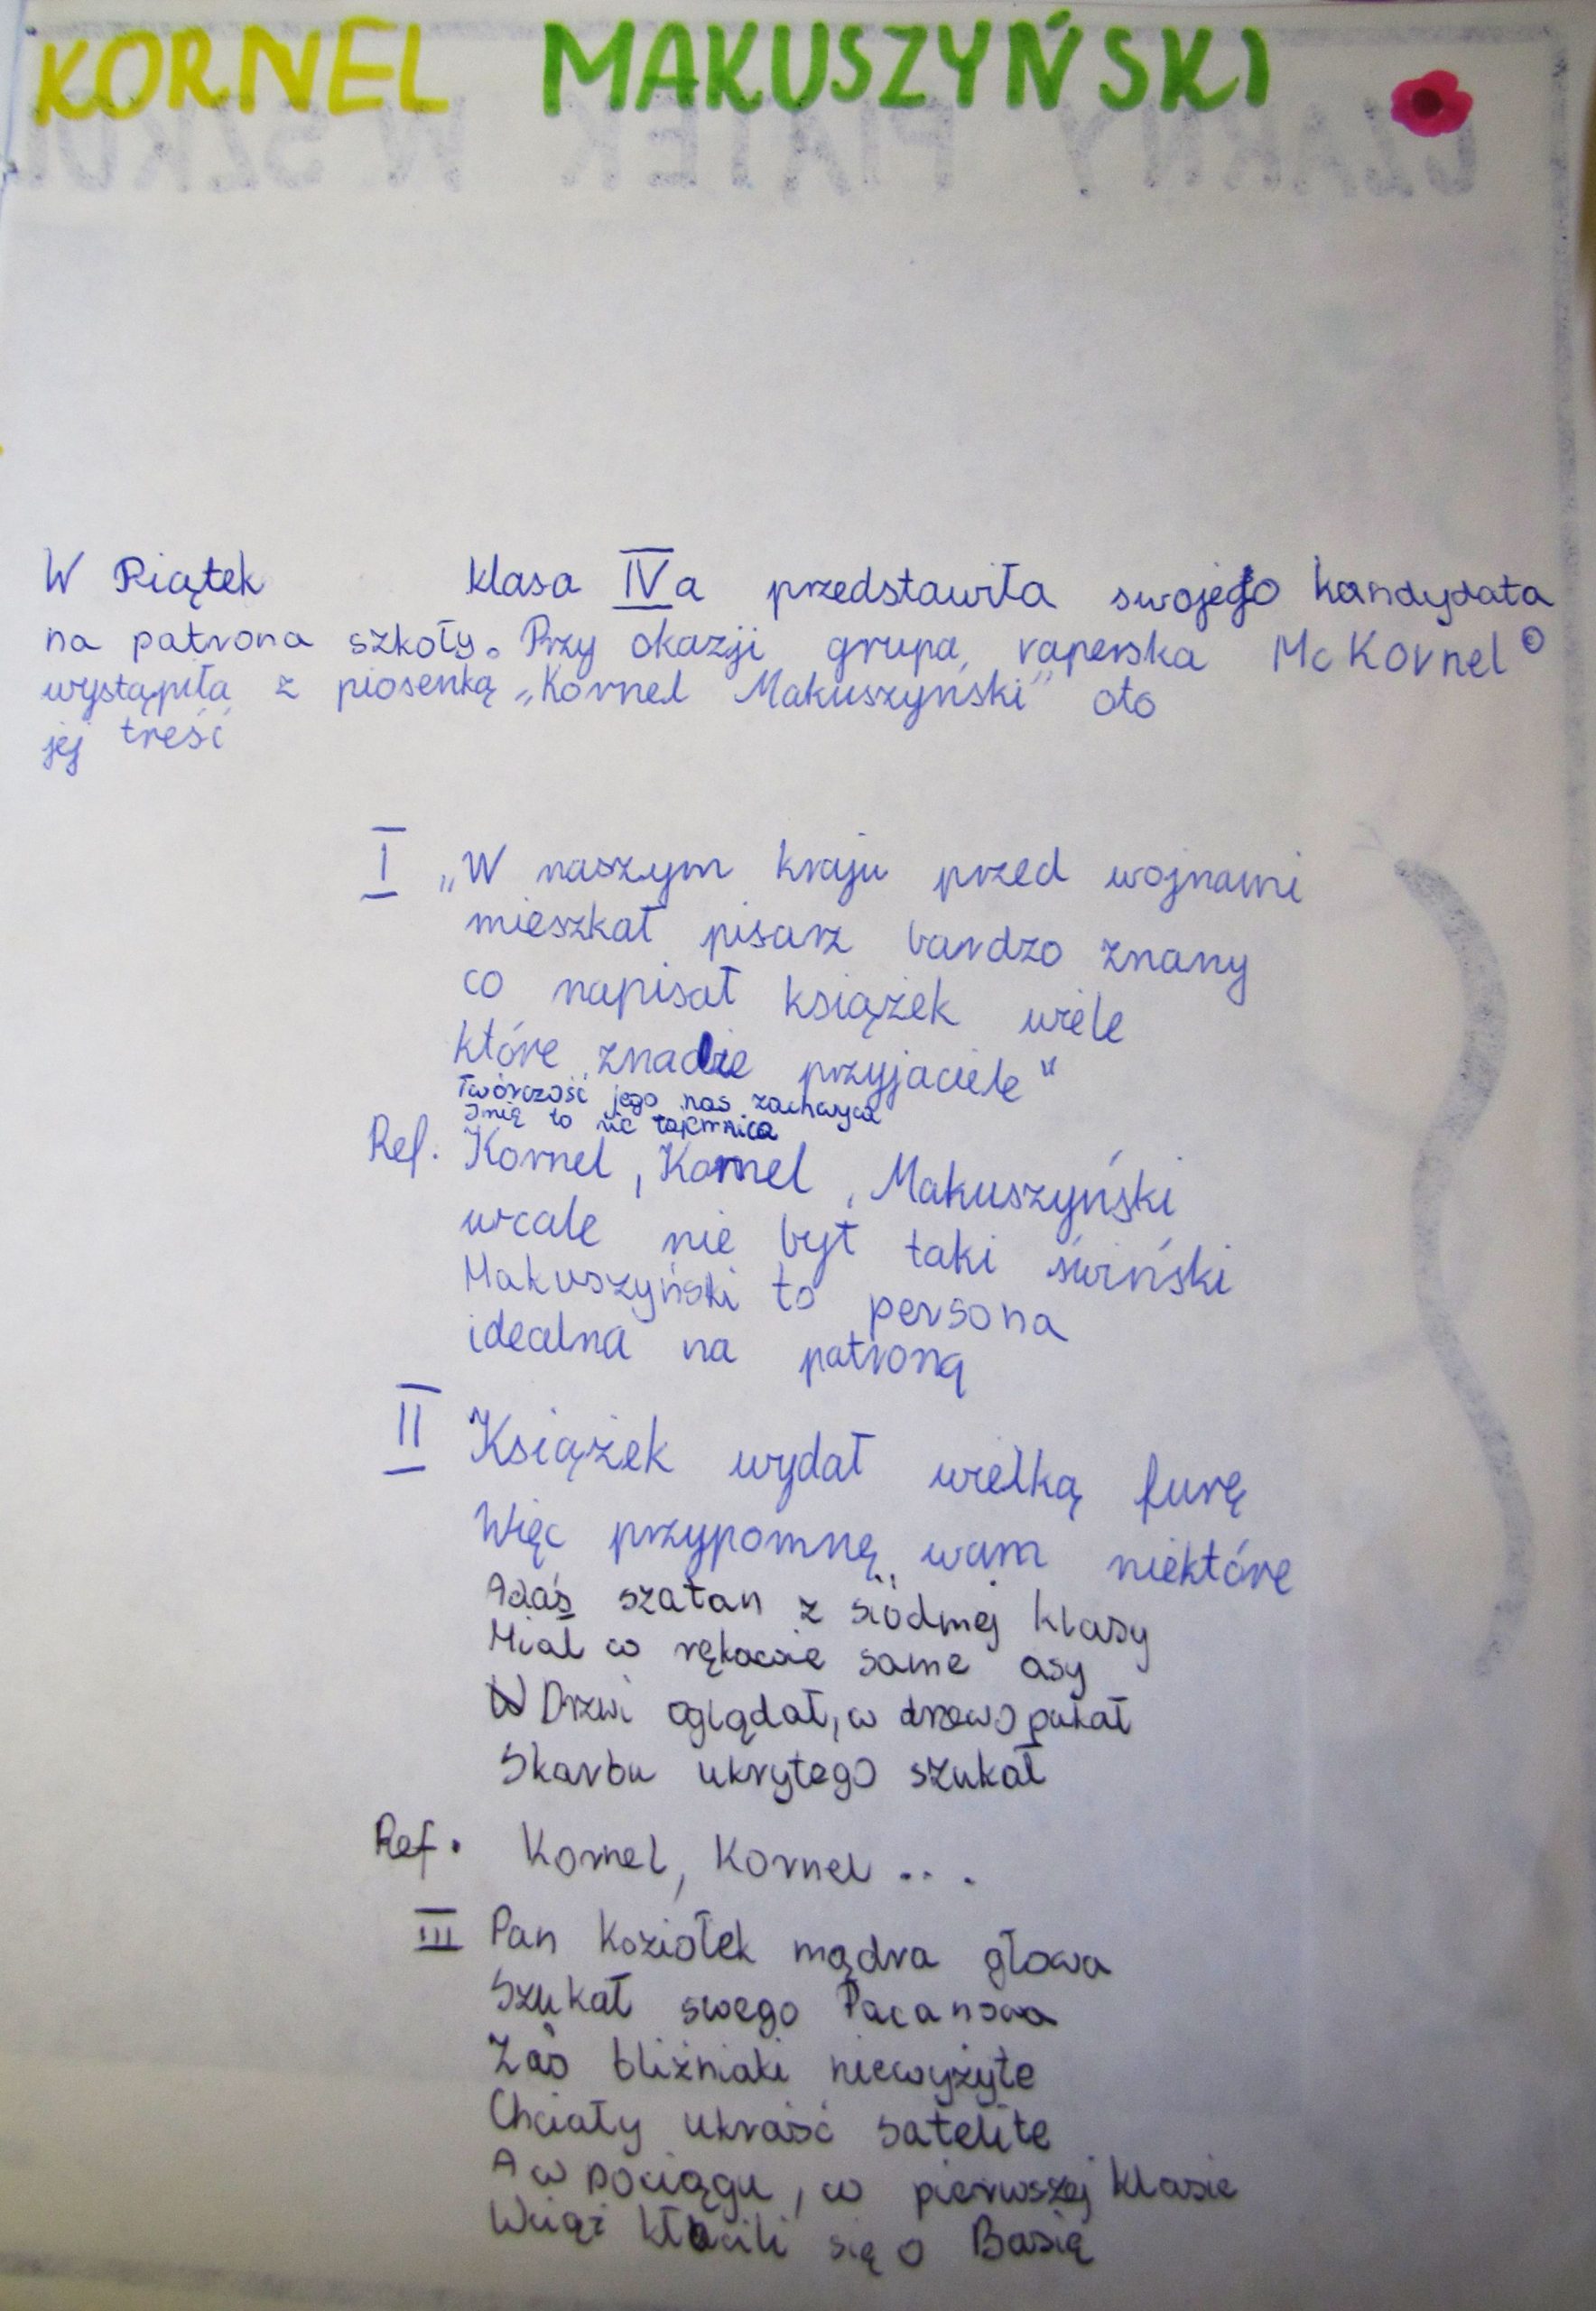 KORNEL MAKUSZYŃSKI
W Piątek klasa IVa przedstawiła swojego kandydata
na patrona szkoły. Przy okazji grupa raperska Mc Kornel
wystąpiła z piosenką „Kornel Makuszyński" oto
jej treść
I „W naszym kraju przed wojnami
mieszkał pisarz bardzo znany
co napisał książek wiele
które znacie przyjaciele"
Twórczość jego nas zachwyca
I nie to nic tajemnica
Ref. Kornel, Kornel, Makuszyński
wcale nie był taki świński
Makuszyński to persona
idealna na patroną
II Książek wydał wielką furę
Więc przypomnę wam niektóre
Adaś szatan z siódmej klasy
Miał w rękawie same asy
Drzwi oglądał, w drewno pukał
Skarbu ukrytego szukał
Ref. Kornel, Kornel ...
III Pan Koziołek mądra głowa
Szukał swego Pacanowa
Zaś bliźniaki niewyżyte
Chciały ukraść satelite
A w pociągu, w pierwszej klasie
Wciąż kłócili się o Basię